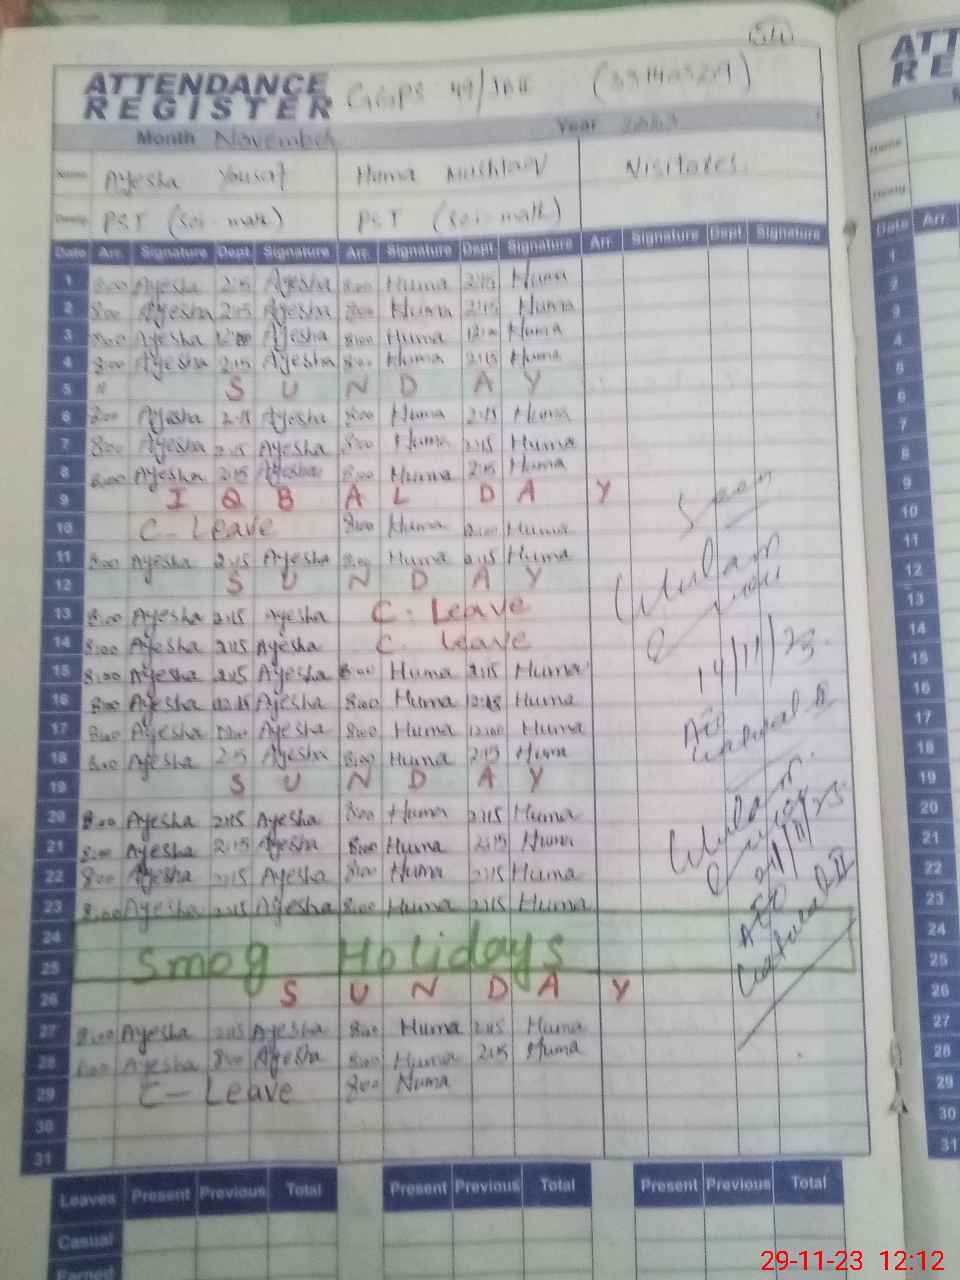 54
ATTENDANCE
REGISTER GGPS 49/JBH (33140329)
Month November Year 2023
Name Ayesha Yousaf Huma Mushtaq Visitores.
Desig PST (sci-math) PST (sci-math)
Date Arr. Signature Dept. Signature Arr. Signature Dept. Signature Arr. Signature Dept. Signature
1 8:00 Ayesha 2:15 Ayesha 8:00 Huma 2:15 Huma
2 8:00 Ayesha 2:15 Ayesha 8:00 Huma 2:15 Huma
3 8:00 Ayesha Ayesha 8:00 Huma Huma
4 8:00 Ayesha 2:15 Ayesha 8:00 Huma 2:15 Huma
5 " S U N D A Y
6 8:00 Ayesha 2:15 Ayesha 8:00 Huma 2:15 Huma
7 8:00 Ayesha 2:15 Ayesha 8:00 Huma 2:15 Huma
8 8:00 Ayesha 2:15 Ayesha 8:00 Huma 2:15 Huma
9 I Q B A L D A Y
10 C-Leave 8:00 Huma 12:00 Huma
11 8:00 Ayesha 2:15 Ayesha 8:00 Huma 2:15 Huma
12 S U N D A Y
13 8:00 Ayesha 2:15 Ayesha C. Leave
14 8:00 Ayesha 2:15 Ayesha C. Leave
15 8:00 Ayesha 2:15 Ayesha 8:00 Huma 2:15 Huma
16 8:00 Ayesha Ayesha 8:00 Huma Huma
17 8:00 Ayesha 12:00 Ayesha 8:00 Huma 12:00 Huma
18 8:00 Ayesha 2:15 Ayesha 8:00 Huma 2:15 Huma
19 S U N D A Y
20 8:00 Ayesha 2:15 Ayesha 8:00 Huma 2:15 Huma
21 8:00 Ayesha 2:15 Ayesha 8:00 Huma 2:15 Huma
22 8:00 Ayesha 2:15 Ayesha 8:00 Huma 2:15 Huma
23 8:00 Ayesha 2:15 Ayesha 8:00 Huma 2:15 Huma
24
Smog Holidays
25
26 S U N D A Y
27 8:00 Ayesha 2:15 Ayesha 8:00 Huma 2:15 Huma
28 8:00 Ayesha 8:00 Ayesha 8:00 Huma 2:15 Huma
29 C-Leave 8:00 Huma
30
31
Seen
14/11/23
AEO
AEO
Leaves Present Previous Total Present Previous Total Present Previous Total
Casual
Earned
ATT
RE
Name
Desig
Date Arr.
1
2
3
4
5
6
7
8
9
10
11
12
13
14
15
16
17
18
19
20
21
22
23
24
25
26
27
28
29
30
31
29-11-23 12:12